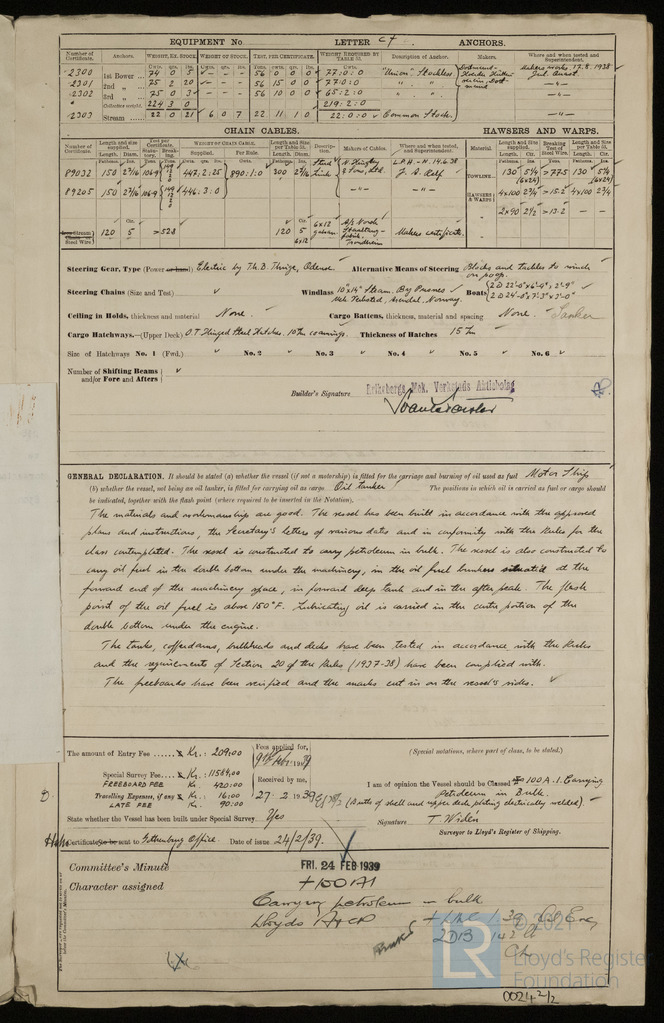 EQUIPMENT No LETTER cf ANCHORS.
Number of Certificate. Anchors. WEIGHT, EX. STOCK. WEIGHT OF STOCK. TEST, PER CERTIFICATE. WEIGHT REQUIRED BY TABLE 31. Description of Anchor. Makers. Where and when tested and Superintendent.
2300 1st Bower 74 0 5 56 0 0 0 77:0:0 "Union" Stockless 17.8.1938
2301 2nd " 75 2 20 56 15 0 0 77:0:0
2302 3rd " 75 0 3 56 10 0 0 65:2:0
Collective weight 224 3 0 219:2:0
2303 Stream 22 0 21 6 0 7 22 11 1 0 22:0:0 Common Stock.
CHAIN CABLES. HAWSERS AND WARPS.
89032 150 2 3/16 106.9 447.2.25 890:1:0 300 2 3/16 Stud Link L.P.H. - N. 14.6.38
89205 150 2 3/16 106.9 446:3:0
Stream Chain or Steel Wire 120 5 =528 120 5 6x12 Makers certificate.
TOWLINE 130 5 1/4 (6x24) =77.5 130 5 1/4 (6x24)
HAWSERS & WARPS 4x100 2 3/4 =15.2 4x100 2 3/4
2x90 2 1/2 =13.2
Steering Gear, Type (Power or hand) Electric by Th. B. Thrige, Odense. Alternative Means of Steering Blocks and tackles to winch on poop.
Steering Chains (Size and Test) Windlass 10"x14" Steam. Mek Verksted, Arendal, Norway. Boats
Ceiling in Holds, thickness and material None. Cargo Battens, thickness, material and spacing None. Tanker
Cargo Hatchways.—(Upper Deck) O.T. Hinged Steel Hatches. coamings. Thickness of Hatches
Size of Hatchways No. 1 (Fwd.) No. 2 No. 3 No. 4 No. 5 No. 6
Number of Shifting Beams and/or Fore and Afters
Builder's Signature Eriksbergs Mek. Verkstads Aktiebolag
GENERAL DECLARATION. It should be stated (a) whether the vessel (if not a motorship) is fitted for the carriage and burning of oil used as fuel Motor Ship
(b) whether the vessel, not being an oil tanker, is fitted for carrying oil as cargo Oil tanker The positions in which oil is carried as fuel or cargo should
be indicated, together with the flash point (where required to be inserted in the Notation).
The materials and workmanship are good. The vessel has been built in accordance with the approved
plans and instructions, the Secretary's letters of various dates and in conformity with the Rules for the
class contemplated. The vessel is constructed to carry petroleum in bulk. The vessel is also constructed to
carry oil fuel in the double bottom under the machinery, in the oil fuel bunkers situated at the
forward end of the machinery space, in forward deep tank and in the after peak. The flash
point of the oil fuel is above 150°F. Lubricating oil is carried in the centre portion of the
double bottom under the engine.
The tanks, cofferdams, bulkheads and decks have been tested in accordance with the Rules
and the requirements of Section 20 of the Rules (1937-38) have been complied with.
The freeboards have been verified and the marks cut in on the vessel's sides.
The amount of Entry Fee Kr.: 209:00 Fees applied for, (Special notations, where part of class, to be stated.)
Special Survey Fee Kr.: 11569:00
FREEBOARD FEE Kr. 420:00 Received by me,
Travelling Expenses, if any Kr. 16:00 27-2 1939
LATE FEE Kr. 90:00
I am of opinion the Vessel should be Classed 100A.1. Carrying
Petroleum in Bulk.
(Butts of shell and upper deck plating electrically welded).
State whether the Vessel has been built under Special Survey Yes Signature T. Widén
Surveyor to Lloyd's Register of Shipping.
Certificate to be sent to Gothenburg Office Date of issue 24/2/39.
Committee's Minute FRI. 24 FEB 1939
Character assigned +100A1
Carrying petroleum in bulk
Lloyds A&CP + LMC 1.39 Oil Eng
2DB
© 2021
LR Lloyd's Register
Foundation
0024 2/2